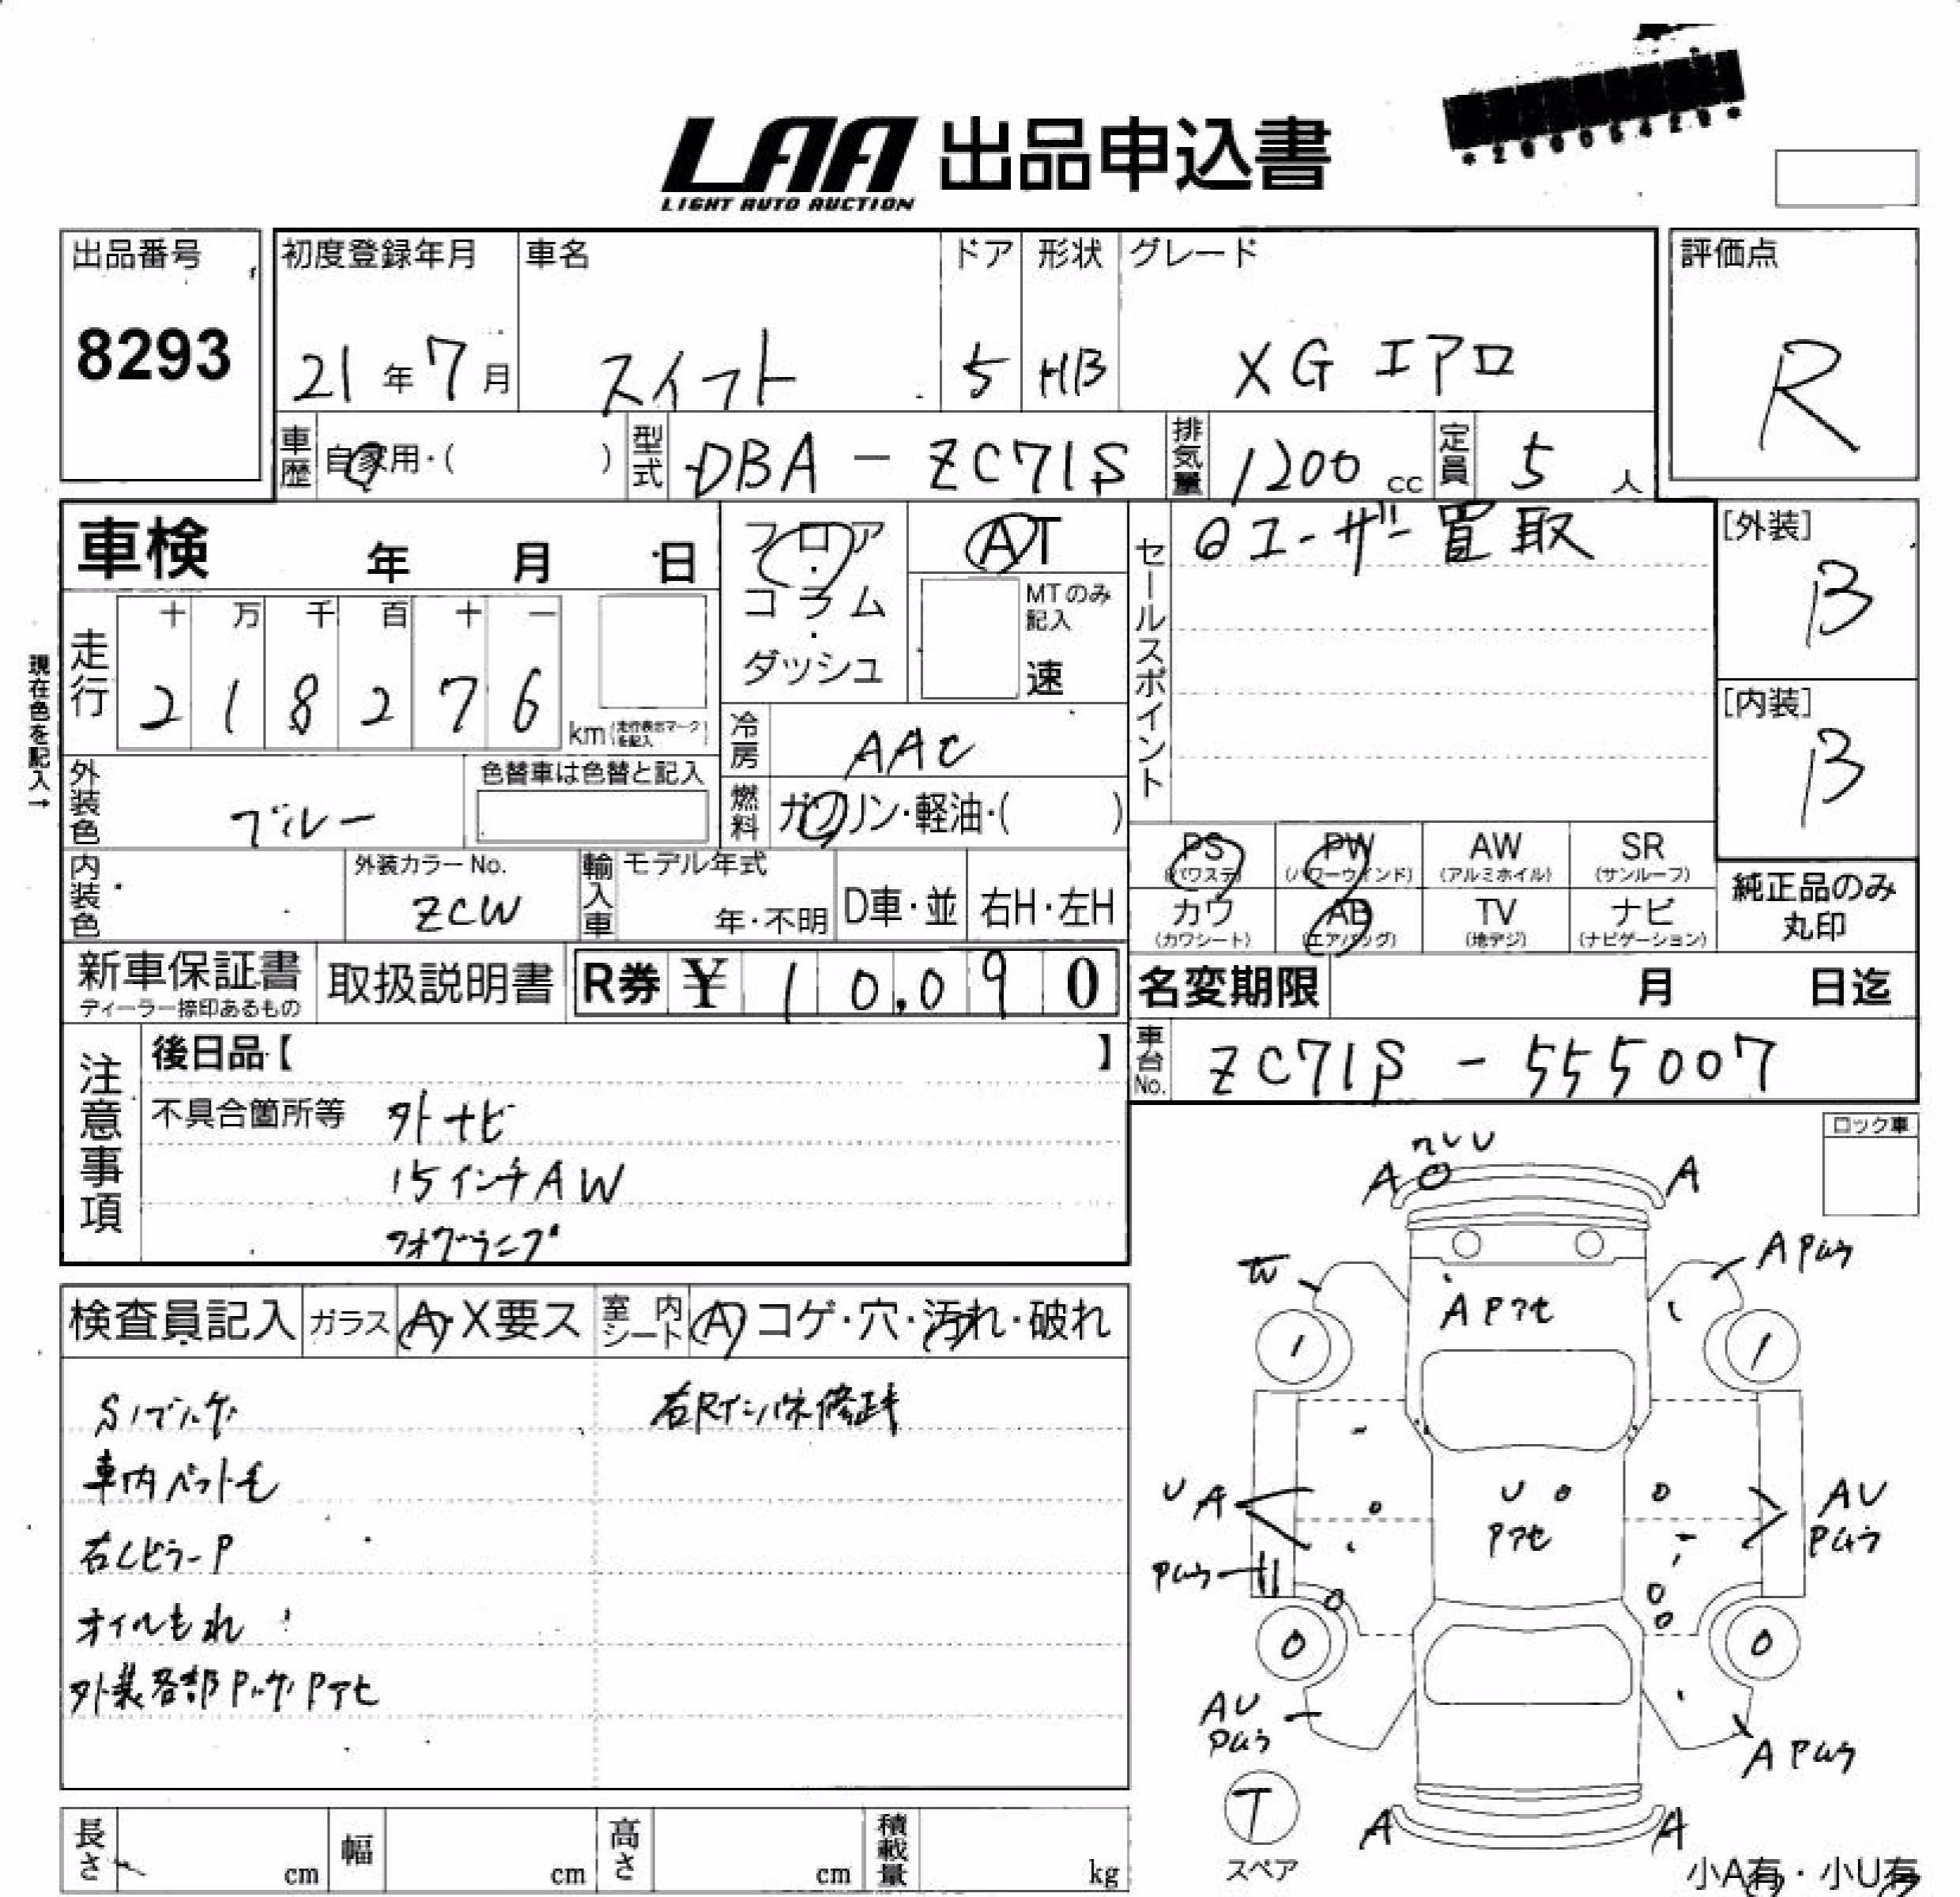 LAA 出品申込書
LIGHT AUTO AUCTION
出品番号
8293
初度登録年月 車名 ドア 形状 グレード
21年7月 スイフト 5 HB XG エアロ
評価点
R
車歴 自家用・( ) 型式 DBA - ZC71S 排気量 1200 cc 定員 5 人
車検 年 月 日
フロア・コラム・ダッシュ
AT
MTのみ記入
速
セールスポイント
◎ユーザー買取
[外装]
B
[内装]
B
現在色を記入→
走行
十 万 千 百 十 一
2 1 8 2 7 6
km(走行表示マークを記入)
冷房 AAC
外装色 ブルー
色替車は色替と記入
燃料 ガソリン・軽油・( )
PS PW AW SR
(パワステ) (パワーウインド) (アルミホイル) (サンルーフ)
カワ AB TV ナビ
(カワシート) (エアバッグ) (地デジ) (ナビゲーション)
純正品のみ
丸印
内装色
外装カラーNo.
ZCW
輸入車 モデル年式
年・不明 D車・並 右H・左H
新車保証書
ディーラー捺印あるもの
取扱説明書
R券 ¥ 10,090
名変期限 月 日迄
車台No. ZC71S - 555007
注意事項
後日品【 】
不具合箇所等 外ナビ
15インチAW
フォグランプ
ロック車
検査員記入 ガラス A・X要ス 室内シート A コゲ・穴・汚れ・破れ
車内ペット毛
右Rインパネ修正キ
右Cピラー P
オイルもれ
外装各部 Pハゲ Pアセ
A A
W
A Pムラ
A Pアセ
1 1
U A
U
Pアセ
AU
Pムラ
Pムラ
0 0
AU
Pムラ
A Pムラ
T
スペア
A A
長さ cm 幅 cm 高さ cm 積載量 kg
小A有・小U有